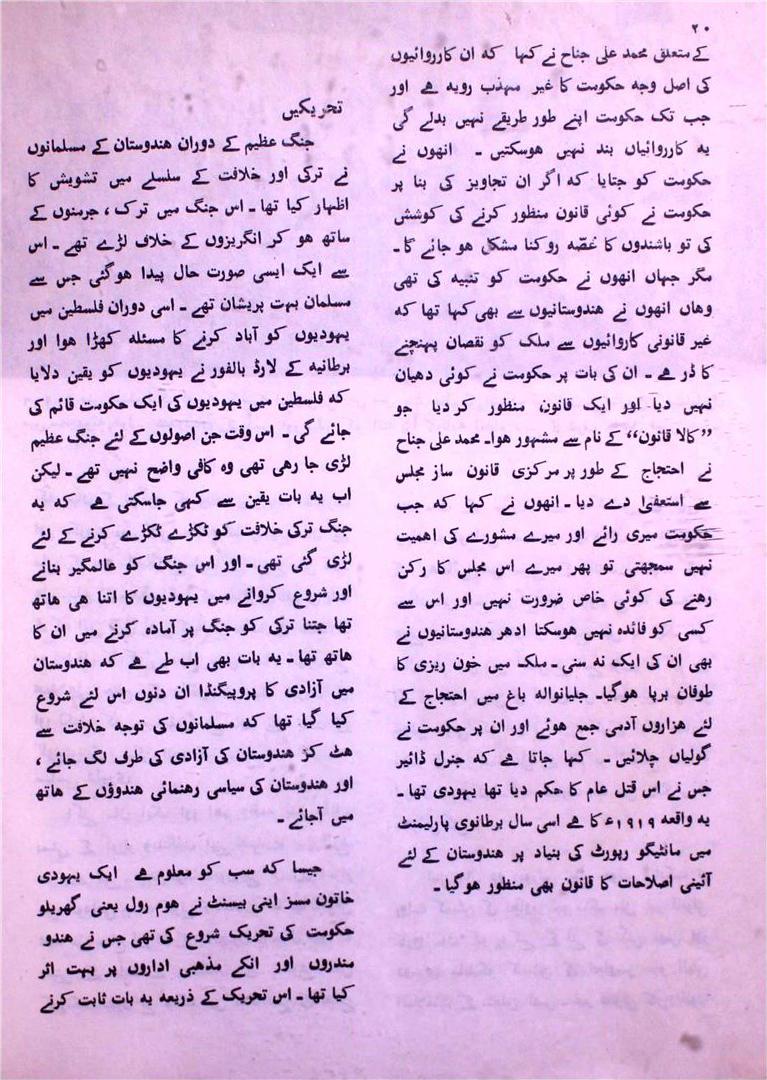 ۲۰
کے متعلق محمد علی جناح نے کہا کہ ان کارروائیوں
کی اصل وجہ حکومت کا غیر مہذب رویہ ہے اور
جب تک حکومت اپنے طور طریقے نہیں بدلے گی
یہ کارروائیاں بند نہیں ہوسکتیں ۔ انھوں نے
حکومت کو جتایا کہ اگر ان تجاویز کی بنا پر
حکومت نے کوئی قانون منظور کرنے کی کوشش
کی تو باشندوں کا غصّہ روکنا مشکل ہو جائے گا۔
مگر جہاں انھوں نے حکومت کو تنبیہ کی تھی
وہاں انھوں نے ہندوستانیوں سے بھی کہا تھا کہ
غیر قانونی کاروائیوں سے ملک کو نقصان پہنچنے
کا ڈر ہے ۔ ان کی بات پر حکومت نے کوئی دھیان
نہیں دیا اور ایک قانون، منظور کردیا جو
”کالا قانون“ کے نام سے مشہور ہوا۔ محمد علی جناح
نے احتجاج کے طور پر مرکزی قانون ساز مجلس
سے استعفیٰ دے دیا ۔ انھوں نے کہا کہ جب
حکومت میری رائے اور میرے مشورے کی اہمیت
نہیں سمجھتی تو پھر میرے اس مجلس کا رکن
رہنے کی کوئی خاص ضرورت نہیں اور اس سے
کسی کو فائدہ نہیں ہوسکتا ادھر ہندوستانیوں نے
بھی ان کی ایک نہ سنی ۔ ملک میں خون ریزی کا
طوفان برپا ہوگیا۔ جلیانوالہ باغ میں احتجاج کے
لئے ہزاروں آدمی جمع ہوئے اور ان پر حکومت نے
گولیاں چلائیں ۔ کہا جاتا ہے کہ جنرل ڈائیر
جس نے اس قتل عام کا حکم دیا تھا یہودی تھا ۔
یہ واقعہ ۱۹۱۹ء کا ہے اسی سال برطانوی پارلیمنٹ
میں مانٹیگو رپورٹ کی بنیاد پر ہندوستان کے لئے
آئینی اصلاحات کا قانون بھی منظور ہو گیا ۔
تحریکیں
جنگ عظیم کے دوران ہندوستان کے مسلمانوں
نے ترکی اور خلافت کے سلسلے میں تشویش کا
اظہار کیا تھا ۔ اس جنگ میں ترک ، جرمنوں کے
ساتھ ہو کر انگریزوں کے خلاف لڑے تھے ۔ اس
سے ایک ایسی صورت حال پیدا ہوگئی جس سے
مسلمان بہت پریشان تھے ۔ اسی دوران فلسطین میں
یہودیوں کو آباد کرنے کا مسئلہ کھڑا ہوا اور
برطانیہ کے لارڈ بالفور نے یہودیوں کو یقین دلایا
کہ فلسطین میں یہودیوں کی ایک حکومت قائم کی
جائے گی ۔ اس وقت جن اصولوں کے لئے جنگ عظیم
لڑی جا رہی تھی وہ کافی واضح نہیں تھے ۔ لیکن
اب یہ بات یقین سے کہی جاسکتی ہے کہ یہ
جنگ ترکی خلافت کو ٹکڑے ٹکڑے کرنے کے لئے
لڑی گئی تھی ۔ اور اس جنگ کو عالمگیر بنانے
اور شروع کروانے میں یہودیوں کا اتنا ہی ہاتھ
تھا جتنا ترکی کو جنگ پر آمادہ کرنے میں ان کا
ہاتھ تھا ۔ یہ بات بھی اب طے ہے کہ ہندوستان
میں آزادی کا پروپیگنڈا ان دنوں اس لئے شروع
کیا گیا تھا کہ مسلمانوں کی توجہ خلافت سے
ہٹ کر ہندوستان کی آزادی کی طرف لگ جائے ،
اور ہندوستان کی سیاسی رہنمائی ہندوؤں کے ہاتھ
میں آجائے ۔
جیسا کہ سب کو معلوم ہے ایک یہودی
خاتون مسز اینی بیسنٹ نے ہوم رول یعنی گھریلو
حکومت کی تحریک شروع کی تھی جس نے ہندو
مندروں اور انکے مذہبی اداروں پر بہت اثر
کیا تھا ۔ اس تحریک کے ذریعہ یہ بات ثابت کرنے